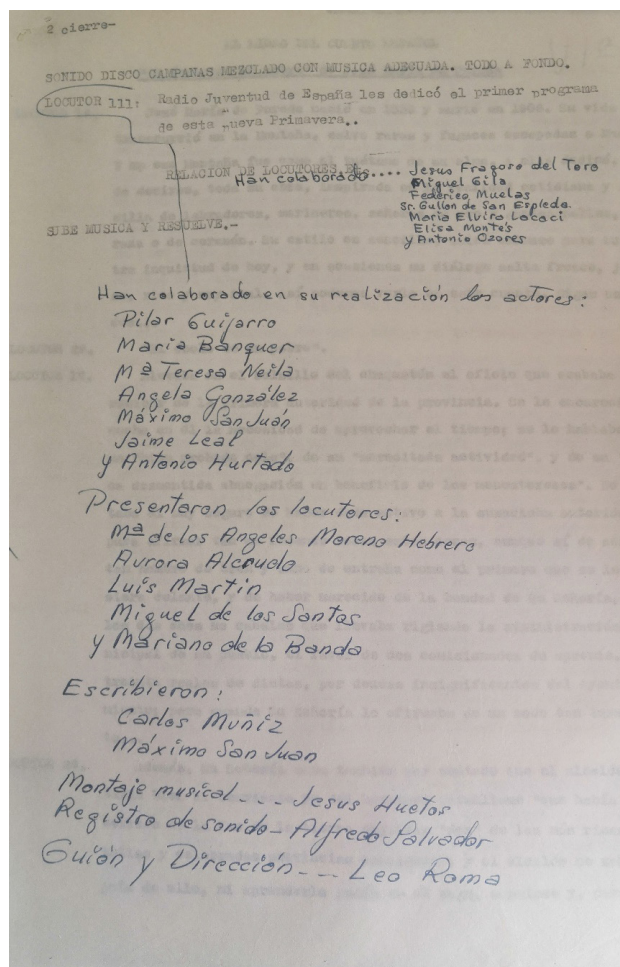 2 cierre-
SONIDO DISCO CAMPANAS MEZCLADO CON MUSICA ADECUADA. TODO A FONDO.
LOCUTOR 111: Radio Juventud de España les dedicó el primer programa
de esta nueva Primavera..
RELACION DE LOCUTORES, Etc.
Han colaborado.... Jesus Fragoso del Toro
Miguel Gila
Federico Muelas
Sr. Gullon de San Espleda.
Maria Elvira Lacaci
Elisa Montés
y Antonio Ozores
SUBE MUSICA Y RESUELVE.-
Han colaborado en su realización los actores:
Pilar Guijarro
Maria Banquer
Mª Teresa Neila
Angela González
Máximo San Juán
Jaime Leal
y Antonio Hurtado
Presentaron los locutores:
Mª de los Angeles Moreno Hebrero
Aurora Alcrudo
Luis Martin
Miguel de los Santos
y Mariano de la Banda
Escribieron:
Carlos Muñiz
Máximo San Juan
Montaje musical... Jesus Huetos
Registro de sonido- Alfredo Salvador
Guión y Dirección--- Leo Roma